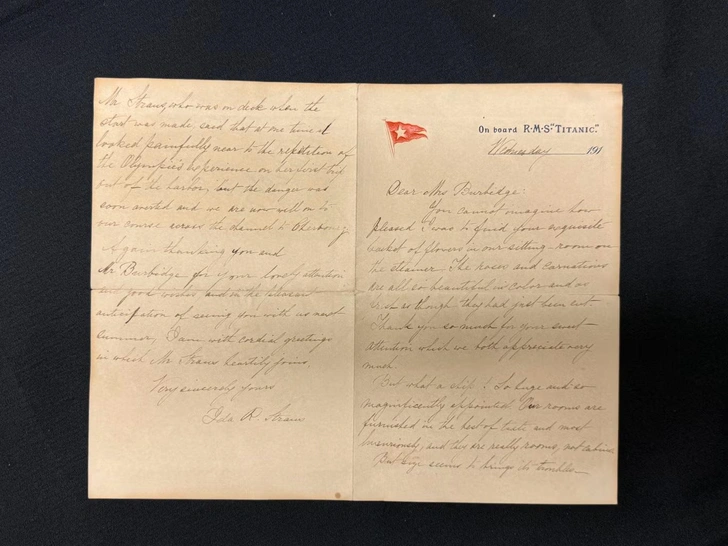 On board R·M·S "TITANIC."
Wednesday 191
Dear Mrs Burbidge:
You cannot imagine how
pleased I was to find your exquisite
basket of flowers in our sitting-room on
the steamer. The roses and carnations
are all so beautiful in color and as
fresh as though they had just been cut.
Thank you so much for your sweet
attention which we both appreciate very
much.
But what a ship! So huge and so
magnificently appointed. Our rooms are
furnished in the best of taste and most
luxuriously, and they are really rooms, not cabins.
But size seems to bring its troubles—
Mr Straus, who was on deck when the
start was made, said that at one time it
looked painfully near to the repetition of
the Olympic's experience on her first trip
out of the harbor, but the danger was
soon averted and we are now well on to
our course across the channel to Cherbourg.
Again thanking you and
Mr Burbidge for your lovely attention
and good wishes and in the pleasant
anticipation of seeing you with us next
summer, I am with cordial greetings
in which Mr Straus heartily joins,
Very sincerely yours
Ida R. Straus